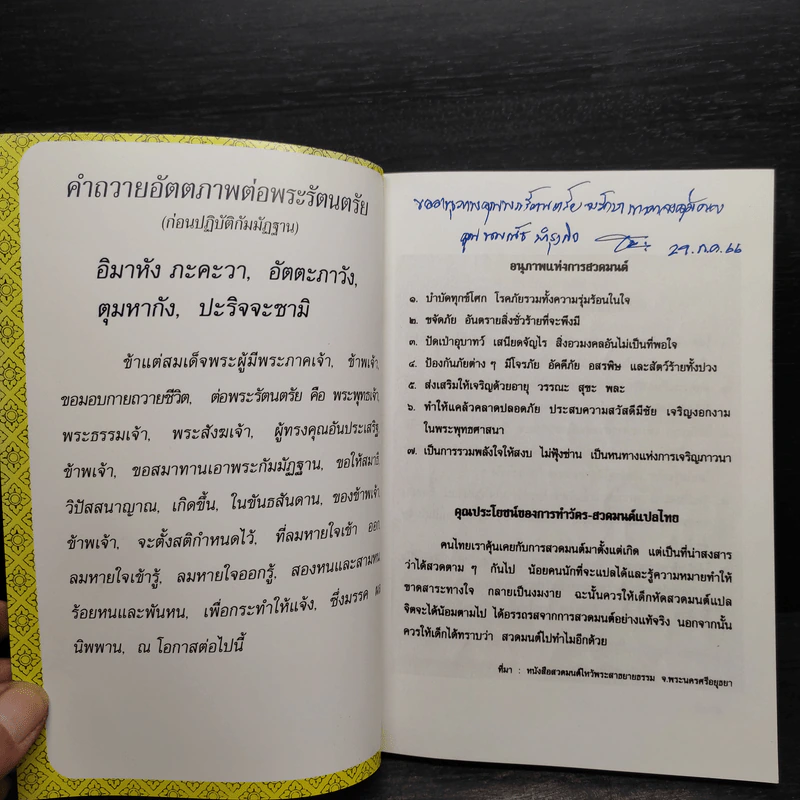 คำถวายอัตตภาพต่อพระรัตนตรัย
(ก่อนปฏิบัติกัมมัฏฐาน)
อิมาหัง ภะคะวา, อัตตะภาวัง,
ตุมหากัง, ปะริจจะชามิ
ข้าแต่สมเด็จพระผู้มีพระภาคเจ้า, ข้าพเจ้า,
ขอมอบกายถวายชีวิต, ต่อพระรัตนตรัย คือ พระพุทธเจ้า,
พระธรรมเจ้า, พระสังฆเจ้า, ผู้ทรงคุณอันประเสริฐ
ข้าพเจ้า, ขอสมาทานเอาพระกัมมัฏฐาน, ขอให้สมาธิ
วิปัสสนาญาณ, เกิดขึ้น, ในขันธสันดาน, ของข้าพเจ้า
ข้าพเจ้า, จะตั้งสติกำหนดไว้, ที่ลมหายใจเข้า ออก
ลมหายใจเข้ารู้, ลมหายใจออกรู้, สองหนและสามหน
ร้อยหนและพันหน, เพื่อกระทำให้แจ้ง, ซึ่งมรรค ผล
นิพพาน, ณ โอกาสต่อไปนี้
๒๙.ก.ค.๖๖
อนุภาพแห่งการสวดมนต์
๑. บำบัดทุกข์โศก โรคภัยรวมทั้งความรุ่มร้อนในใจ
๒. ขจัดภัย อันตรายสิ่งชั่วร้ายที่จะพึงมี
๓. ปัดเป่าอุบาทว์ เสนียดจัญไร สิ่งอวมงคลอันไม่เป็นที่พอใจ
๔. ป้องกันภัยต่าง ๆ มีโจรภัย อัคคีภัย อสรพิษ และสัตว์ร้ายทั้งปวง
๕. ส่งเสริมให้เจริญด้วยอายุ วรรณะ สุขะ พละ
๖. ทำให้แคล้วคลาดปลอดภัย ประสบความสวัสดีมีชัย เจริญงอกงาม
ในพระพุทธศาสนา
๗. เป็นการรวมพลังใจให้สงบ ไม่ฟุ้งซ่าน เป็นหนทางแห่งการเจริญภาวนา
คุณประโยชน์ของการทำวัตร-สวดมนต์แปลไทย
คนไทยเราคุ้นเคยกับการสวดมนต์มาตั้งแต่เกิด แต่เป็นที่น่าสงสาร
ว่าได้สวดตาม ๆ กันไป น้อยคนนักที่จะแปลได้และรู้ความหมายทำให้
ขาดสาระทางใจ กลายเป็นงมงาย ฉะนั้นควรให้เด็กหัดสวดมนต์แปล
จิตจะได้น้อมตามไป ได้อรรถรสจากการสวดมนต์อย่างแท้จริง นอกจากนั้น
ควรให้เด็กได้ทราบว่า สวดมนต์ไปทำไมอีกด้วย
ที่มา : หนังสือสวดมนต์ไหว้พระสาธยายธรรม จ.พระนครศรีอยุธยา